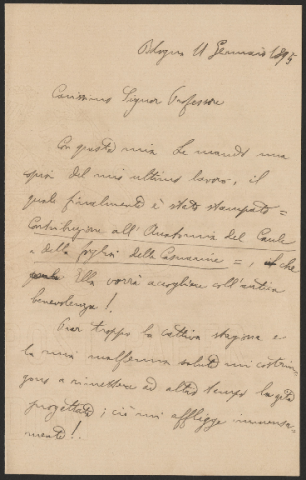 Bologna 11 Gennaio 1895
Carissimo Signor Professore
Con questa mia Le mando una
copia del mio ultimo lavoro, il
quale finalmente è stato stampato =
Contribuzione all'Anatomia del Caule
e della foglia delle Casuarine =, che
Ella vorrà accogliere coll'antica
benevolenza!
Pur troppo la cattiva stagione e
la mia malferma salute mi costrin-
gono a rimettere ad altro tempo la gita
progettata; ciò mi affligge immensa-
mente!